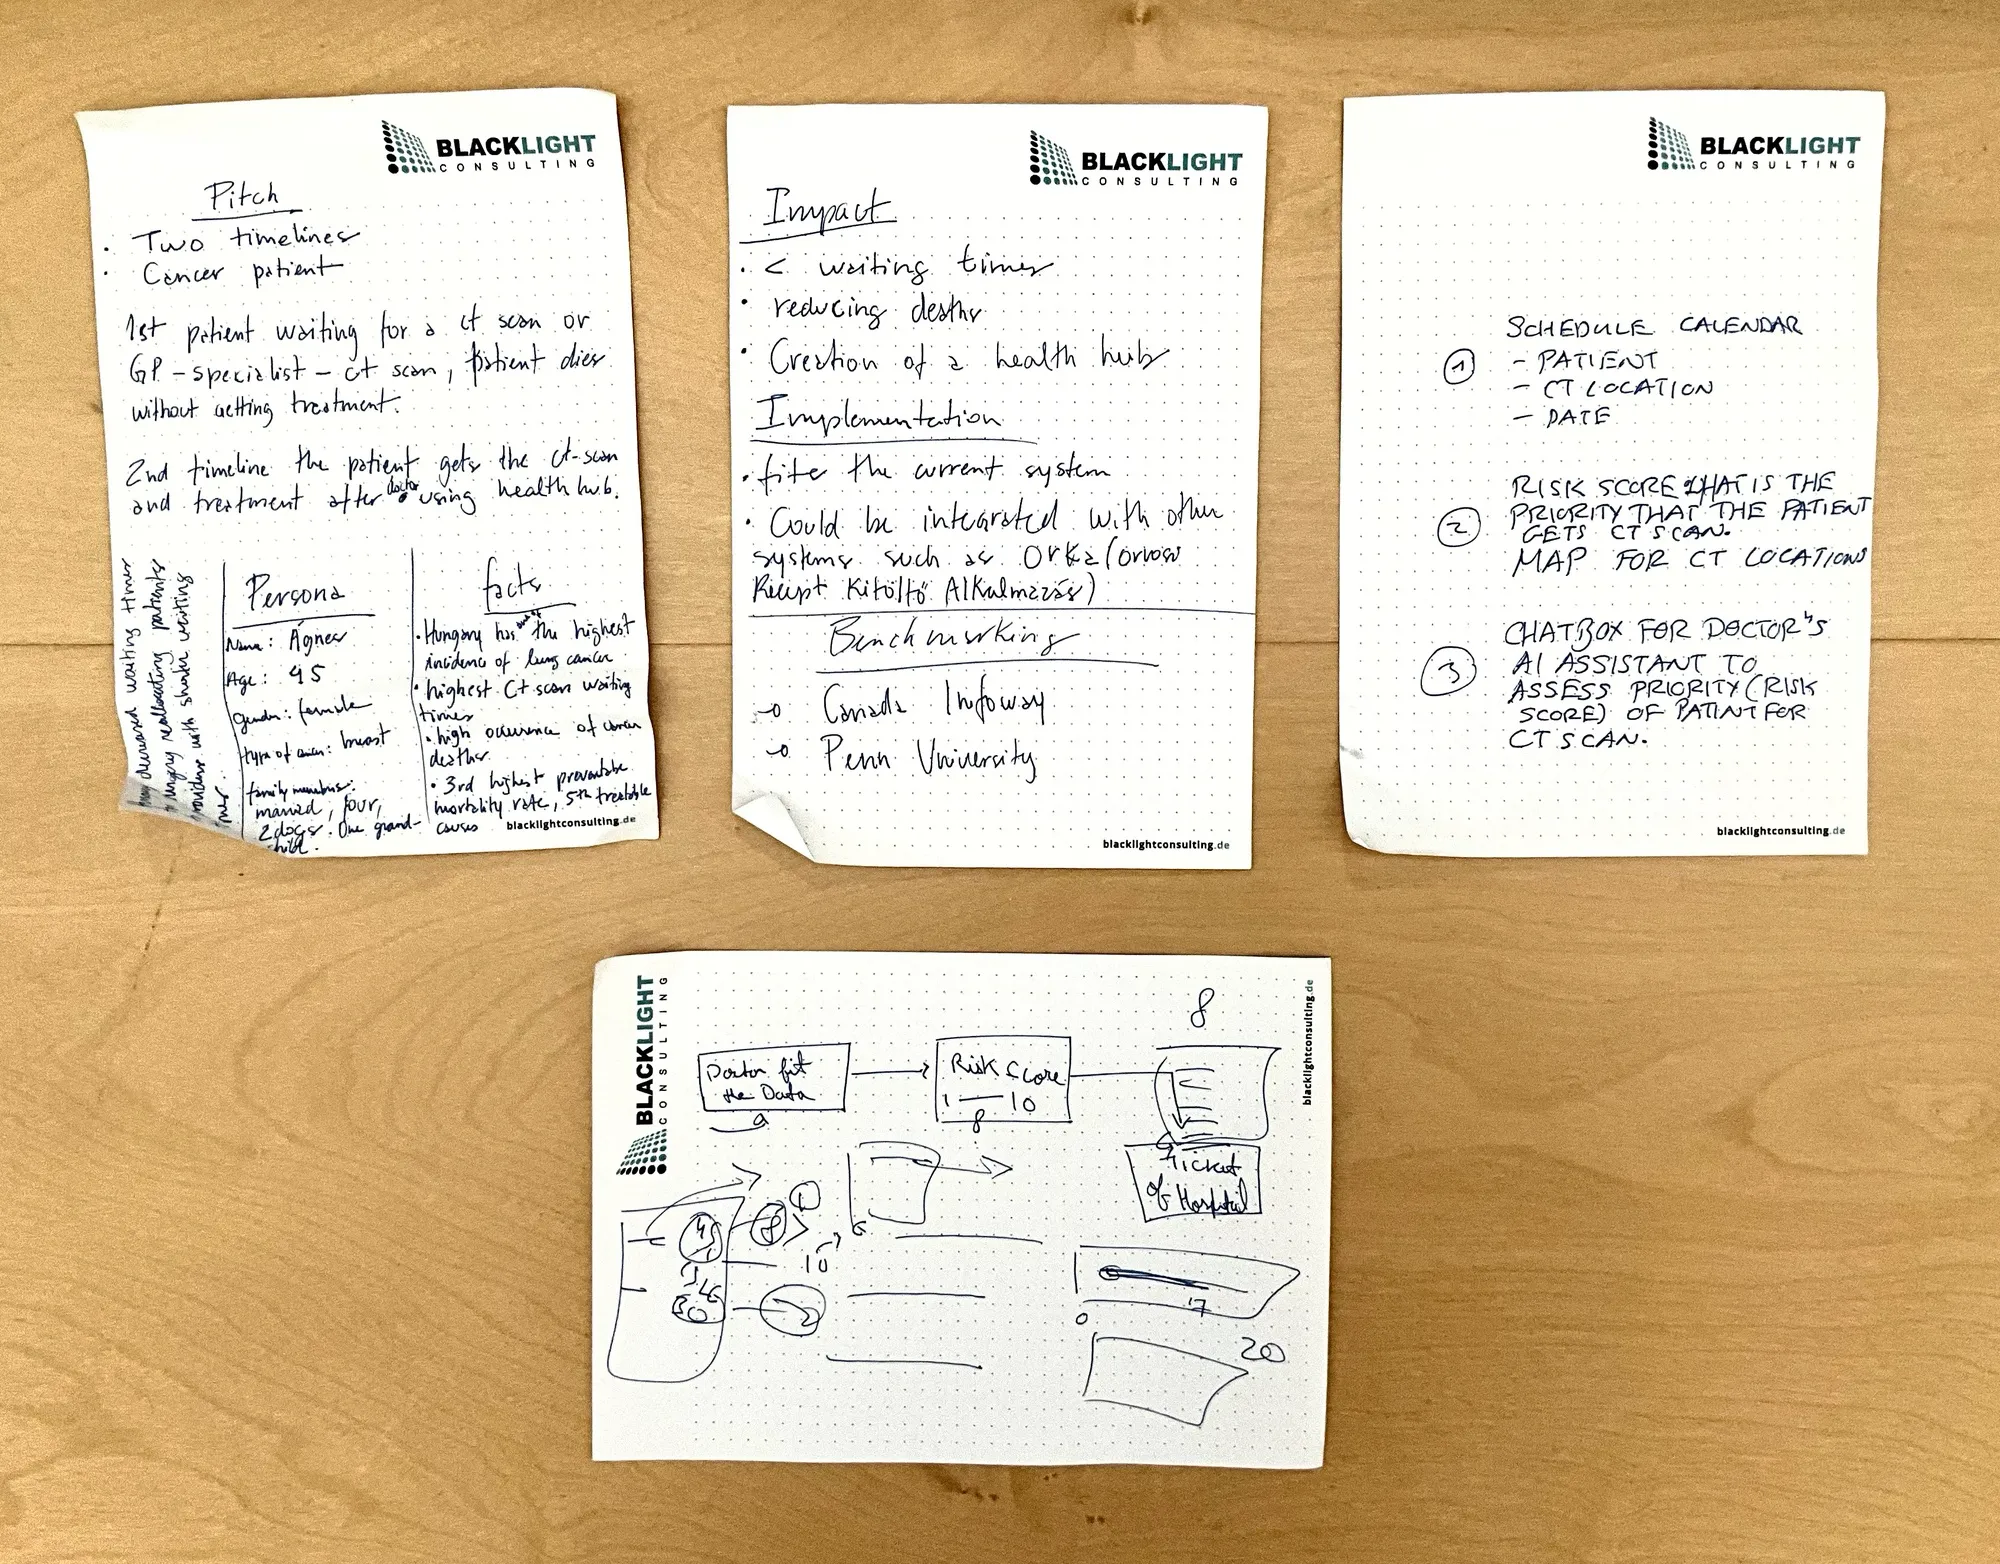 BLACKLIGHT
CONSULTING
Pitch
• Two timelines
• Cancer patient
1st patient waiting for a ct scan or
GP - specialist - ct scan, patient dies
without getting treatment.
2nd timeline the patient gets the ct-scan
and treatment after doctor using health hub.
decreased waiting times
reallocating patients
with shorter waiting
times.
Persona
Name: Ágnes
Age: 45
Gender: female
type of cancer: breast
family members:
married, four,
2 dogs. One grand-
child.
facts
• Hungary has the highest
incidence of lung cancer
• highest Ct scan waiting
times
• high occurence of cancer
deaths.
• 3rd highest preventable
mortality rate, 5th treatable
causes
blacklightconsulting.de
BLACKLIGHT
CONSULTING
Impact
• < waiting times
• reducing deaths
• Creation of a health hub
Implementation
• fits the current system
• Could be integrated with other
systems such as Orka (orvosi
Recept Kitöltő Alkalmazás)
Benchmarking
Canada Infoway
Penn University
blacklightconsulting.de
BLACKLIGHT
CONSULTING
SCHEDULE CALENDAR
1 - PATIENT
- CT LOCATION
- DATE
RISK SCORE THAT IS THE
2 PRIORITY THAT THE PATIENT
GETS CT SCAN.
MAP FOR CT LOCATIONS
CHATBOX FOR DOCTOR'S
3 AI ASSISTANT TO
ASSESS PRIORITY (RISK
SCORE) OF PATINT FOR
CT SCAN.
blacklightconsulting.de
BLACKLIGHT
CONSULTING
blacklightconsulting.de
8
Doctor fit
the Data
Risk Score
1 — 10
8
Ticket
of Hospital
8
1
10
30
2
7
0
20